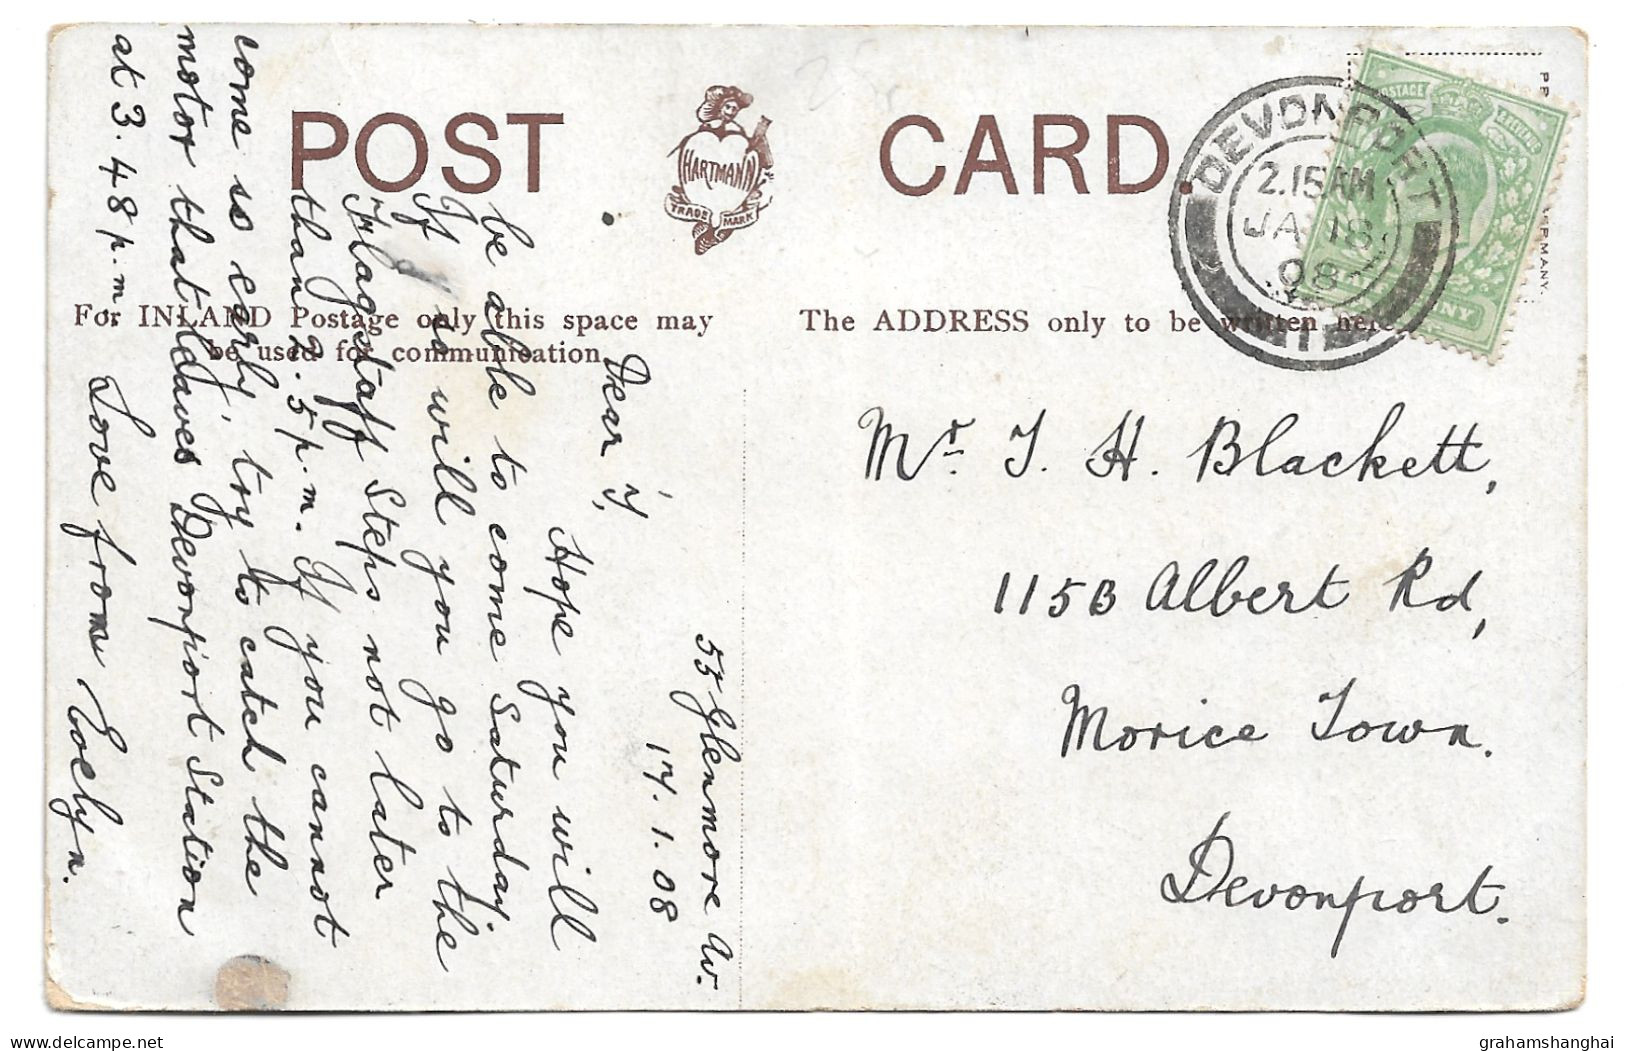 POST CARD.
HARTMANN
TRADE MARK
For INLAND Postage only this space may
be used for communication.
The ADDRESS only to be written here.
DEVONPORT
2.15AM
JA 18
08
11
POSTAGE
55 Glenmore Av.
17.1.08
Dear J,
Hope you will
be able to come Saturday.
If so will you go to the
Flagstaff Steps not later
than 2.5 p.m. If you cannot
come so early, try to catch the
motor that leaves Devonport Station
at 3.48 p.m.
Love from Evelyn.
Mr. J. H. Blackett,
115B Albert Rd,
Morice Town.
Devonport.
grahamshanghai
delcampe.net